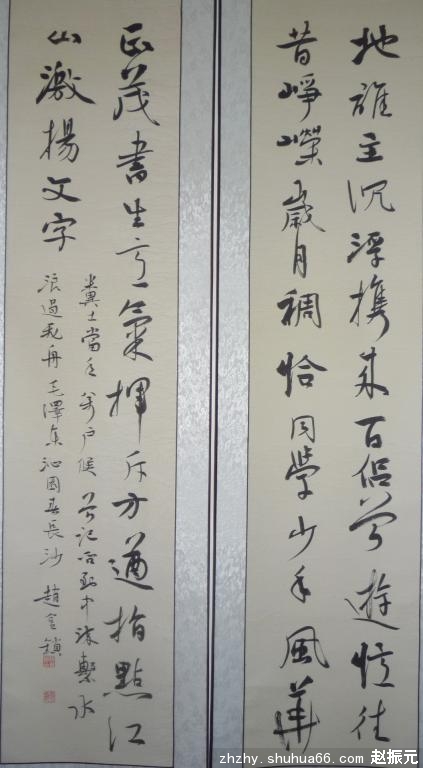 地誰主沉浮携来百侣曾遊憶往
昔崢嶸歲月稠恰同學少年風華
正茂書生意氣揮斥方遒指點江
山激揚文字
糞土當年萬户侯曾記否到中流擊水
浪遏飛舟毛澤東沁園春長沙 趙
zhzhy.shuhua66.com 赵振元